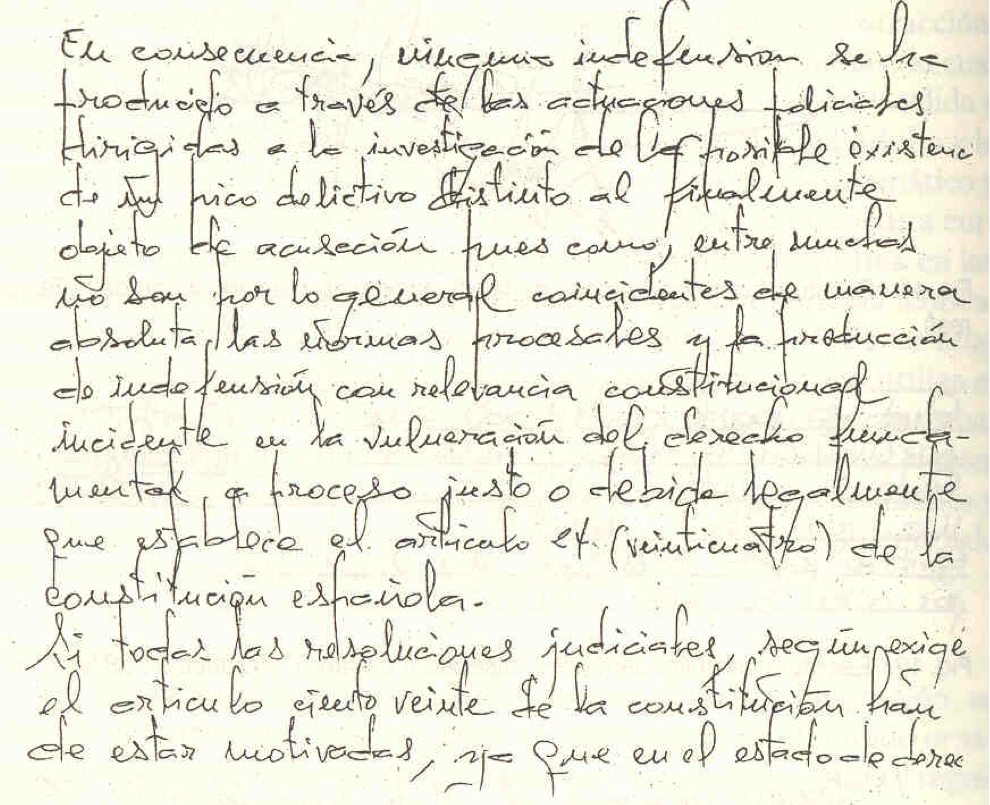 En consecuencia, ninguna indefension se ha
producido a través de las actuaciones policiales
dirigidas a la investigación de la posible existenc
de un pico delictivo distinto al finalmente
objeto de acusación pues como, entre muchas
no son por lo general coincidentes de manera
absoluta, las normas procesales y la producción
de indefensión con relevancia constitucional
incidente en la vulneración del derecho funda-
mental, a proceso justo o debida legalmente
que establece el artículo 24. (veinticuatro) de la
constitución española.
Si todas las resoluciones judiciales, según exige
el artículo ciento veinte de la constitución han
de estar motivadas, ya que en el estado de derec